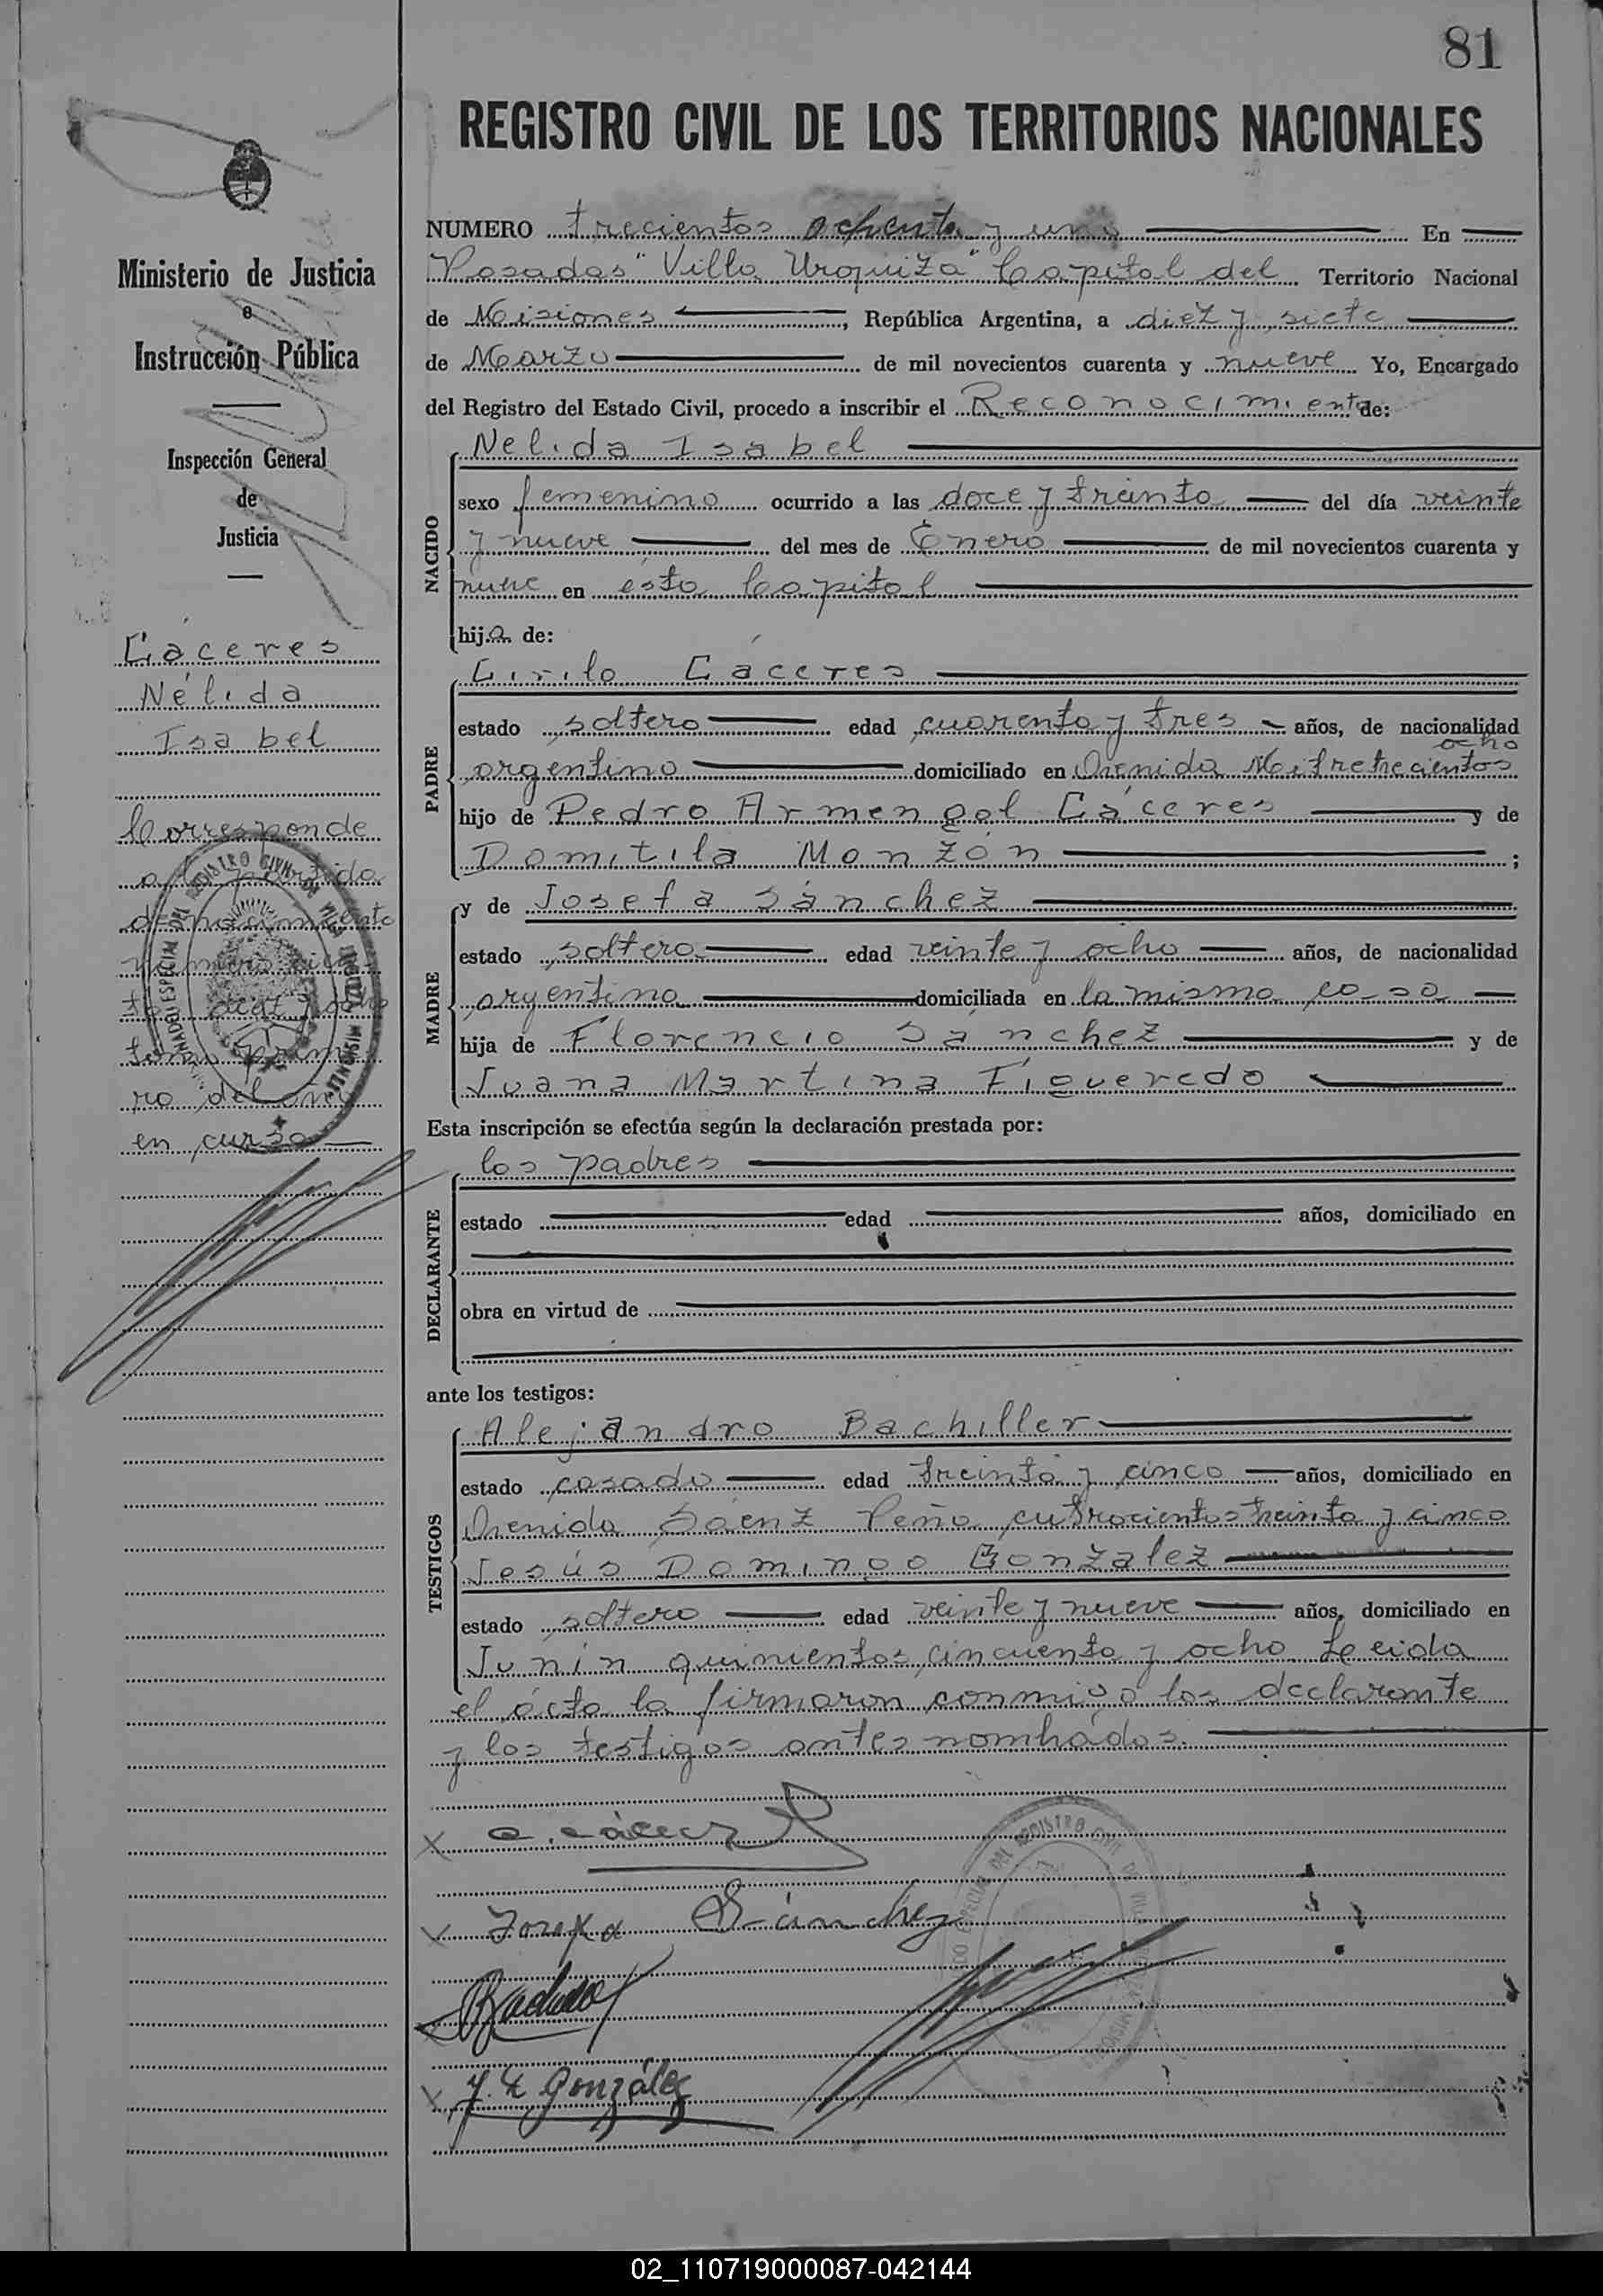 81
REGISTRO CIVIL DE LOS TERRITORIOS NACIONALES
Ministerio de Justicia
e
Instrucción Pública
Inspección General
de
Justicia
Cáceres
Nélida
Isabel
Corresponde
a la partida
de nacimiento
número
tomo prime
ro del año
en curso
NUMERO trecientos ochenta y uno En
Posadas "Villa Urquiza" Capital del Territorio Nacional
de Misiones, República Argentina, a diez y siete
de Marzo de mil novecientos cuarenta y nueve Yo, Encargado
del Registro del Estado Civil, procedo a inscribir el Reconocimiento de:
NACIDO
Nelida Isabel
sexo femenino ocurrido a las doce y treinta del día veinte
y nueve del mes de Enero de mil novecientos cuarenta y
nueve en ésta Capital
hija de:
PADRE
Cirilo Cáceres
estado soltero edad cuarenta y tres años, de nacionalidad
ocho
argentino domiciliado en Avenida Mitre trecientos
hijo de Pedro Armengol Cáceres y de
Domitila Monzón ;
MADRE
y de Josefa Sánchez
estado soltera edad veinte y ocho años, de nacionalidad
argentina domiciliada en la misma casa
hija de Florencio Sánchez y de
Juana Martina Figueredo
Esta inscripción se efectúa según la declaración prestada por:
DECLARANTE
los padres
estado edad años, domiciliado en
obra en virtud de
ante los testigos:
TESTIGOS
Alejandro Bachiller
estado casado edad treinta y cinco años, domiciliado en
Avenida Sáenz Peña cutrocientos treinta y cinco
Jesús Domingo Gonzalez
estado soltero edad veinte y nueve años, domiciliado en
Junín quinientos cincuenta y ocho Leida
el ácta la firmaron conmigo los declarante
y los testigos antes nombrados.
C. Cáceres
Josefa Sánchez
J. D. González
02_110719000087-042144